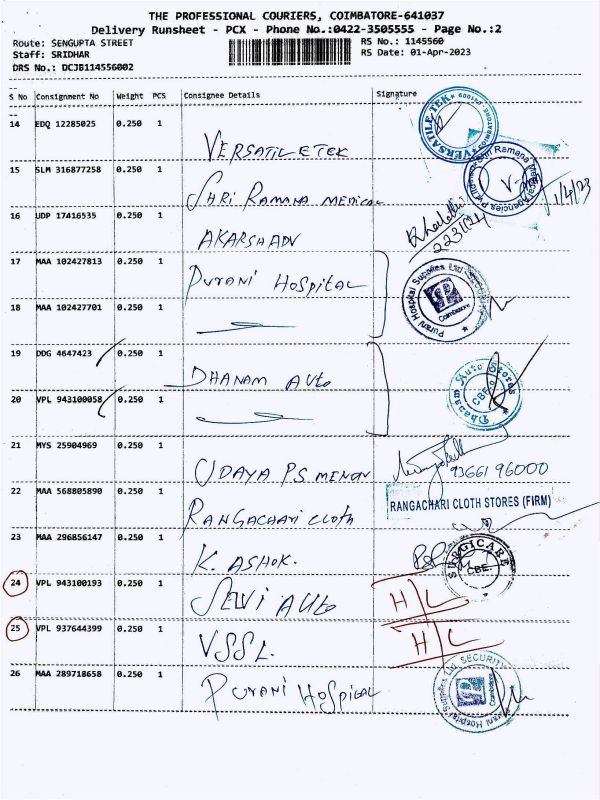 THE PROFESSIONAL COURIERS, COIMBATORE-641037
Delivery Runsheet - PCX - Phone No.:0422-3505555 - Page No.:2
Route: SENGUPTA STREET RS No.: 1145560
Staff: SRIDHAR RS Date: 01-Apr-2023
DRS No.: DCJB114556002
S No Consignment No Weight PCS Consignee Details Signature
14 EDQ 12285025 0.250 1 VERSATILE TEK VERSATILE TEK
15 SLM 316877258 0.250 1 SHRI RAMANA MEDICAL Shri Ramana 1/4/23
16 UDP 17416535 0.250 1 AKARSHADV
17 MAA 102427813 0.250 1 PURANI HOSPITAL Purani Hospital Supplies Ltd Coimbatore
18 MAA 102427701 0.250 1
19 DDG 4647423 0.250 1 DHANAM AUTO Dhanam Auto Stores CBE
20 VPL 943100058 0.250 1
21 MYS 25904969 0.250 1 UDAYA P.S. MENON 93661 96000
22 MAA 568805890 0.250 1 RANGACHARI CLOTH RANGACHARI CLOTH STORES (FIRM)
23 MAA 296856147 0.250 1 K. ASHOK. SURGICARE CBE.
24 VPL 943100193 0.250 1 SELVI AUTO H/L
25 VPL 937644399 0.250 1 VSSL. H/L
26 MAA 289718658 0.250 1 PURANI HOSPITAL Purani Hospital Supplies Ltd. SECURITY Coimbatore